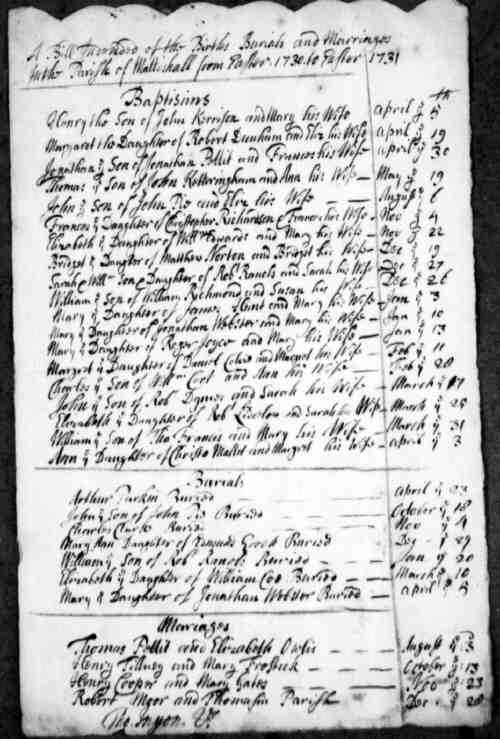 A Bill Indented of the Births Burials and Marriages
In the Parish of Mattishall from Easter 1730 to Easter 1731
Baptisms th
Henry the Son of John Kerrison and Mary his Wife April ye 5
Margaret the Daughter of Robert Dunham and Eliz his Wife April ye 19
Jonathan ye Son of Jonathan Pellit and Frances his Wife April ye 30
Thomas ye Son of John Ketteringham and Ann his Wife May ye 19
John ye Son of John Rie and Eliz his Wife August ye 6
Frances ye Daughter of Christopher Richardson & Frances his Wife Nov ye 4
Elizabeth ye Daughter of Willm Edwards and Mary his Wife Nov ye 22
Bridget ye Daughter of Matthew Norton and Bridget his Wife Dec ye 19
Sarah & Will Son & Daughter of Rob Ranols and Sarah his Wife Dec ye 27
William ye Son of William Richmond and Susan his Wife Dec ye 26
Mary ye Daughter of James Hunt and Mary his Wife Jan ye 3
Mary ye Daughter of Jonathan Webster and Mary his Wife Jan ye 10
Mary ye Daughter of Roger Joyce and Mary his Wife Jan ye 13
Margret ye Daughter of Daniel and Margret his Wife Feb ye 11
Charles ye Son of and Ann his Wife Feb ye 28
John ye Son of Rob Dynes and Sarah his Wife March ye 17
Elizabeth ye Daughter of Rob and Sarah his Wife March ye 28
William ye Son of Tho Francis and Mary his Wife March ye 31
Ann ye Daughter of Christo Mallet and Margret his Wife April ye 3
Burials
Arthur Parkin Buried April ye 23
John ye Son of John Rie Buried October ye 18
Charles Clarke Buried Nov ye 4
Mary Ann Daughter of Edmund Buried Dec ye 29
William ye Son of Rob Ranols Buried Jan ye 20
Elizabeth ye Daughter of William Coe Buried March ye 10
Mary ye Daughter of Jonathan Webster Buried April ye 8
Marriages
Thomas Pellit and Elizabeth August ye 3
Henry Tilney and Mary October ye 13
Henry Cooper and Mary Gates Nov ye 23
Robert Moor and Thomasin Parish Dec ye 28
Vr